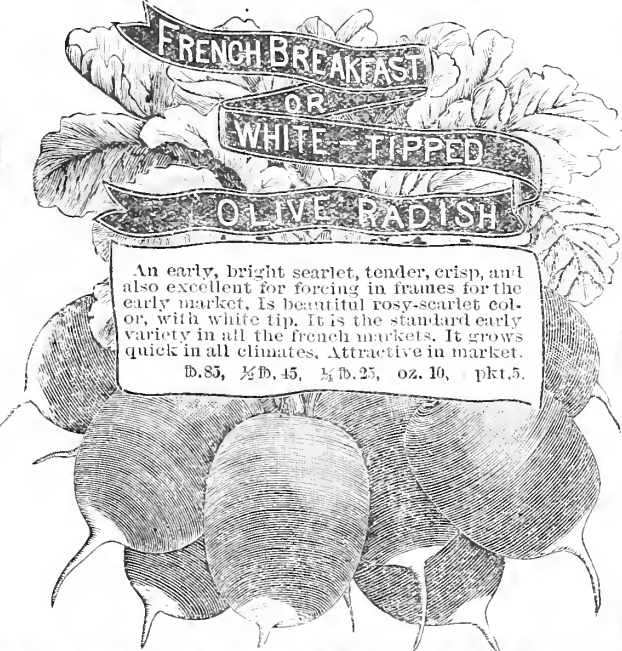 FRENCH BREAKFAST
OR
WHITE-TIPPED
OLIVE RADISH
An early, bright scarlet, tender, crisp, and
also excellent for forcing in frames for the
early market. Is beautiful rosy-scarlet col-
or, with white tip. It is the standard early
variety in all the french markets. It grows
quick in all climates. Attractive in market.
℔.85, ½℔.45, ¼℔.25, oz. 10, pkt.5.